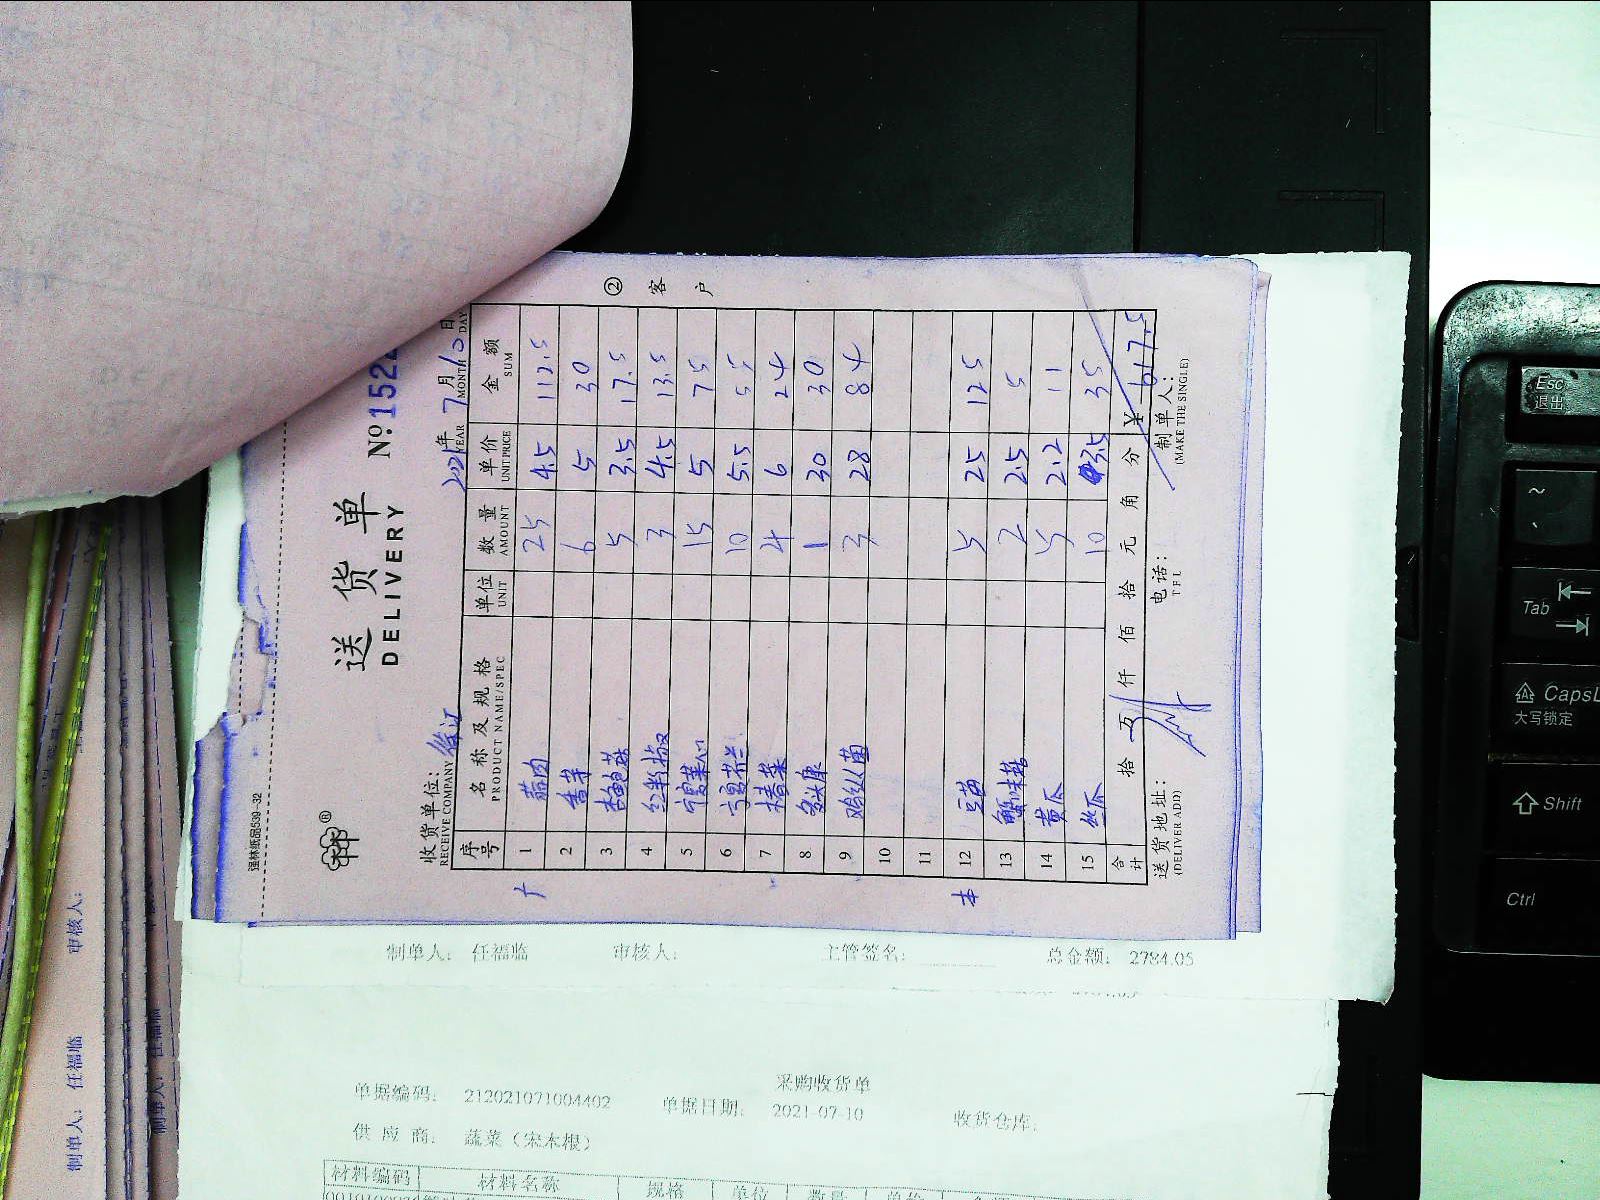 强林纸品539-32
送货单
DELIVERY
№ 152
收货单位:
RECEIVE COMPANY
2021年 7月 10日
YEAR MONTH DAY
② 客户
序号 名称及规格 单位 数量 单价 金额
PRODUCT NAME/SPEC UNIT AMOUNT UNIT PRICE SUM
1 菇肉 25 4.5 112.5
2 香芹 6 5 30
3 杏鲍菇 5 3.5 17.5
4 红米椒 3 4.5 13.5
5 宁夏菜心 15 5 75
6 宁夏芥兰 10 5.5 55
7 椿菜 4 6 24
8 1 30 30
9 鸡枞菌 3 28 84
10
11
12 豆苗 5 25 125
13 蟹味菇 2 2.5 5
14 黄瓜 5 2.2 11
15 丝瓜 10 3.5 35
合计 拾 万 仟 佰 拾 元 角 分 ¥ 617.5
送货地址: 电话: 制单人:
(DELIVER ADD) TEL (MAKE THE SINGLE)
制单人: 任福临 审核人: 主管签名: 总金额: 2784.05
采购收货单
单据编码: 212021071004402 单据日期: 2021-07-10 收货仓库:
供应商: 蔬菜(宋木根)
材料编码 材料名称 规格 单位 数量 单价
制单人: 任福临 审核人:
制单人: 任福临
Esc
退出
~
Tab
CapsL
大写锁定
Shift
Ctrl